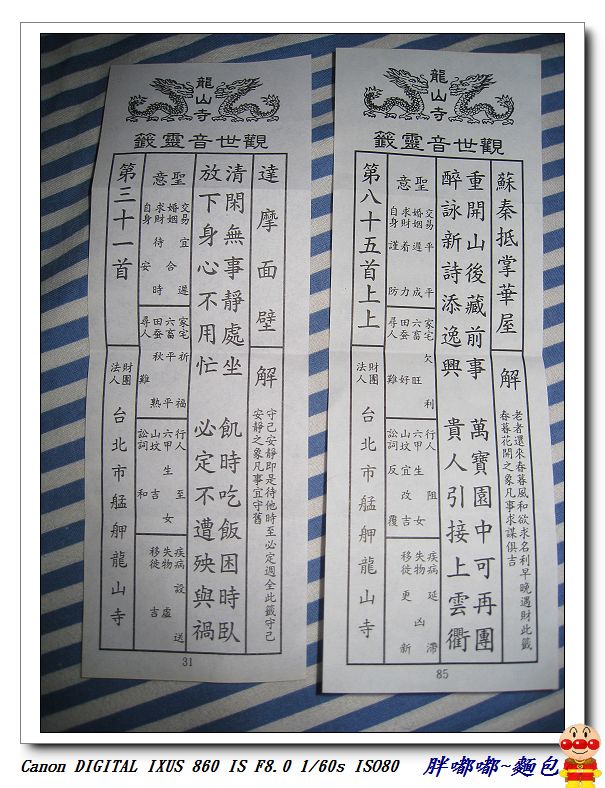 龍山寺
觀世音靈籤
達摩面壁
解
守己安靜即是待他時至必定週全此籤守己
安靜之象凡事宜守舊
清閑無事靜處坐 飢時吃飯困時臥
放下身心不用忙 必定不遭殃與禍
聖意
交易宜遲
婚姻合
求財待時
自身安
家宅祈福
六畜平平
田蚕秋熟
尋人難
行人至
六甲生女
山坟吉
訟詞和
疾病設送
失物虛
移徙吉
第三十一首
財團法人 台北市艋舺龍山寺
31
龍山寺
觀世音靈籤
蘇秦抵掌華屋
解
老者還來春暮風和欲求名利早晚遇財此籤
春暮花開之象凡事求謀俱吉
重開山後藏前事 萬寶園中可再團
醉詠新詩添逸興 貴人引接上雲衢
聖意
交易平平
婚姻遲成
求財看力
自身謹防
家宅欠利
六畜旺
田蚕好
尋人難
行人阻
六甲生女
山坟宜改吉
訟詞反覆
疾病延滯
失物凶
移徙更新
第八十五首上上
財團法人 台北市艋舺龍山寺
85
Canon DIGITAL IXUS 860 IS F8.0 1/60s ISO80 胖嘟嘟~麵包